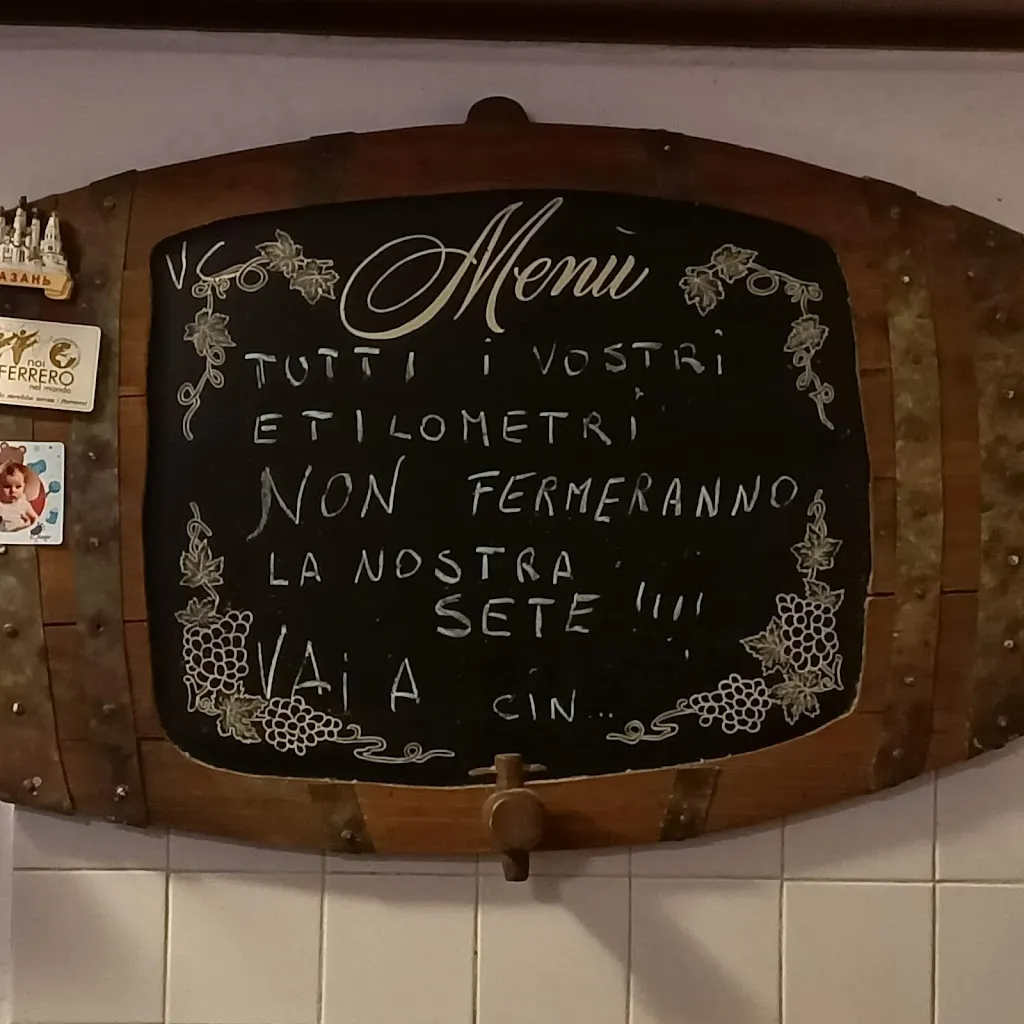 Menù
VC
TUTTI i VOSTRi
ETILOMETRi
NON FERMERANNO
LA NOSTRA
SETE !!!!
VAi A CiN...
АЗАНЬ
noi
FERRERO
nel mondo